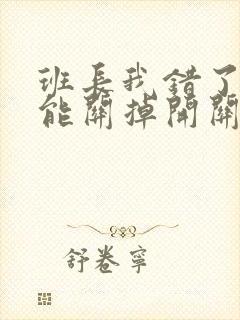 班長我錯了
能關掉開關
舒卷寧